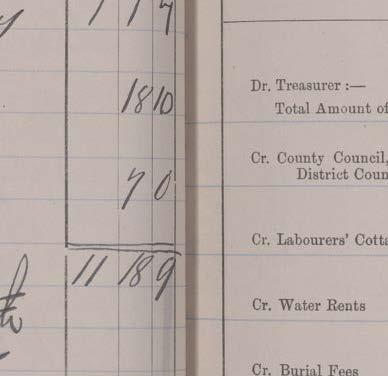 1 1 7
18 10
7 0
11 18 9
Dr. Treasurer :—
Total Amount of
Cr. County Council,
District Coun
Cr. Labourers' Cotta
Cr. Water Rents
Cr. Burial Fees